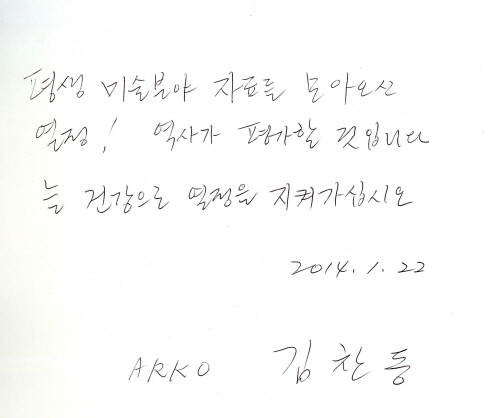 평생 미술분야 자료를 모아오신
열정! 역사가 평가할 것입니다
늘 건강으로 열정을 지켜가십시오
2014. 1. 22
ARKO 김찬동